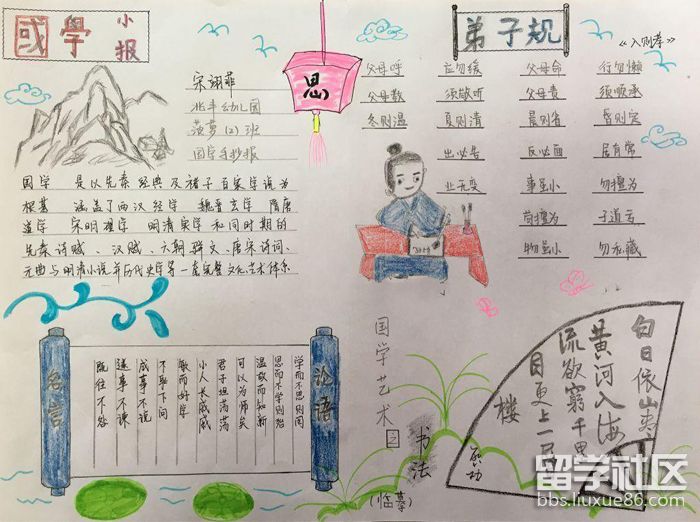 國學小报
宋翊菲
北丰幼儿园
菠萝(2)班
国学手抄报
国学 是以先秦经典及诸子百家学说为
根基 涵盖了两汉经学 魏晋玄学 隋唐
道学 宋明理学 明清实学和同时期的
先秦诗赋、汉赋、六朝骈文、唐宋诗词、
元曲与明清小说并历代史学等一套完整文化艺术体系
思
弟子规
《入则孝》
父母呼 应勿缓 父母命 行勿懒
父母教 须敬听 父母责 须顺承
冬则温 夏则清 晨则省 昏则定
出必告 反必面 居有常
业无变 事虽小 勿擅为
苟擅为 子道亏
物虽小 勿私藏
论语
学而不思则罔
思而不学则殆
温故而知新
可以为师矣
君子坦荡荡
小人长戚戚
敏而好学
不耻下问
成事不说
遂事不谏
既往不咎
名言
国学艺术之
书法
(临摹)
白日依山尽
黄河入海
流欲穷千里
目更上一层
楼
启功
留学社区
bbs.liuxue86.com